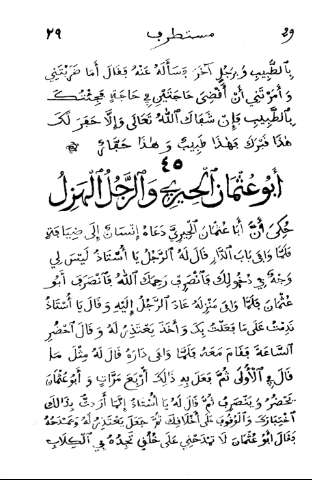 وو مستطرف ٢٩
بالطّبيب وبرجل آخر فسأله عنه فقال أما ضربتني
وأمرتني أن أقضي حاجتين في حاجة فجئتك
بالطّبيب فإن شفاك الله تعالى وإلّا حفر لك
هذا قبرك فهذا طبيب وهذا حفّار
٤٥
أبو عثمان الحيري والرّجل الهزل
حكي أنّ أبا عثمان الحيري دعاه إنسان إلى ضيافة
فلمّا وافى باب الدّار قال له الرّجل يا أستاذ ليس لي
وجه في دخولك فانصرف رحمك الله فانصرف أبو
عثمان فلمّا وافى منزله عاد الرّجل إليه وقال يا أستاذ
ندمت على ما فعلت بك وأخذ يعتذر له وقال احضر
السّاعة فقام معه فلمّا وافى داره قال له مثل ما
قال في الأولى ثمّ فعل به ذلك أربع مرّات وأبو عثمان
يحضر وينصرف ثمّ قال له يا أستاذ إنّما أردت بذلك
اختبارك والوقوف على أخلاقك ثمّ جعل يعتذر له ويمدحه
فقال أبو عثمان لا تمدحني على خلق تجده في الكلاب